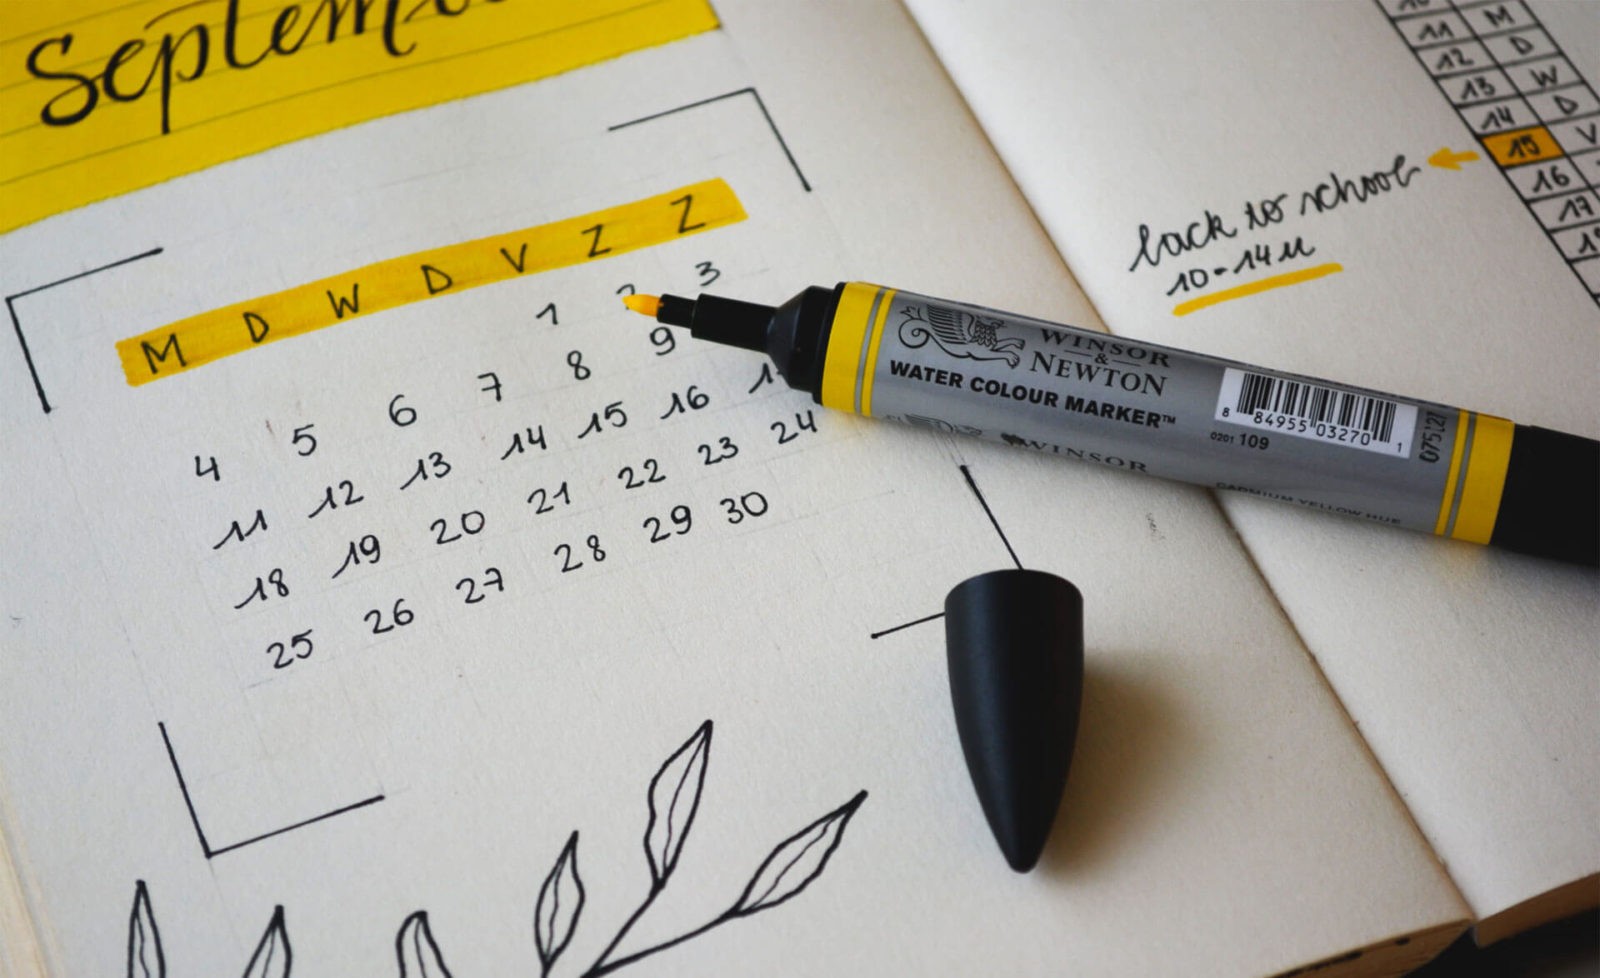 Septem
M D W D V Z Z
1 2 3
4 5 6 7 8 9
11 12 13 14 15 16
18 19 20 21 22 23 24
25 26 27 28 29 30
11 M
12 D
13 W
14 D
15 V
16
17
back to school
10-14u
WINSOR
&
NEWTON
WATER COLOUR MARKER™
8 84955 03270 1
0201 109
075127
WINSOR
CADMIUM YELLOW HUE